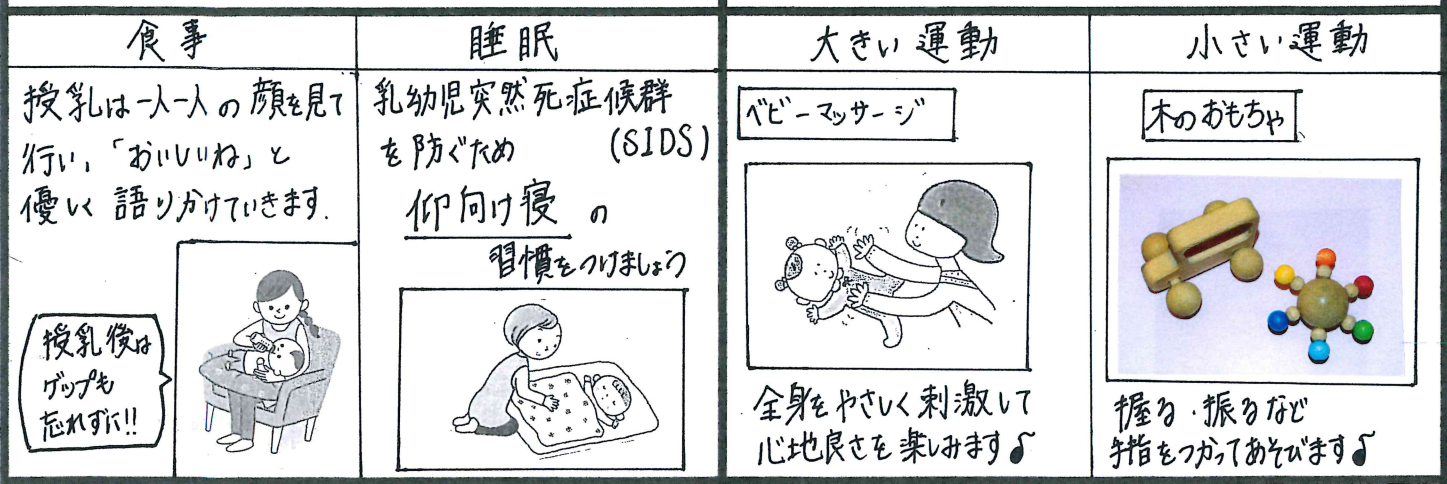 食事
授乳は一人一人の顔を見て
行い、「おいしいね」と
優しく語りかけていきます。
授乳後は
ゲップも
忘れずに!!
睡眠
乳幼児突然死症候群
(SIDS)
を防ぐため
仰向け寝の
習慣をつけましょう
大きい運動
ベビーマッサージ
全身をやさしく刺激して
心地良さを楽しみます♪
小さい運動
木のおもちゃ
握る・振るなど
手指をつかってあそびます♪